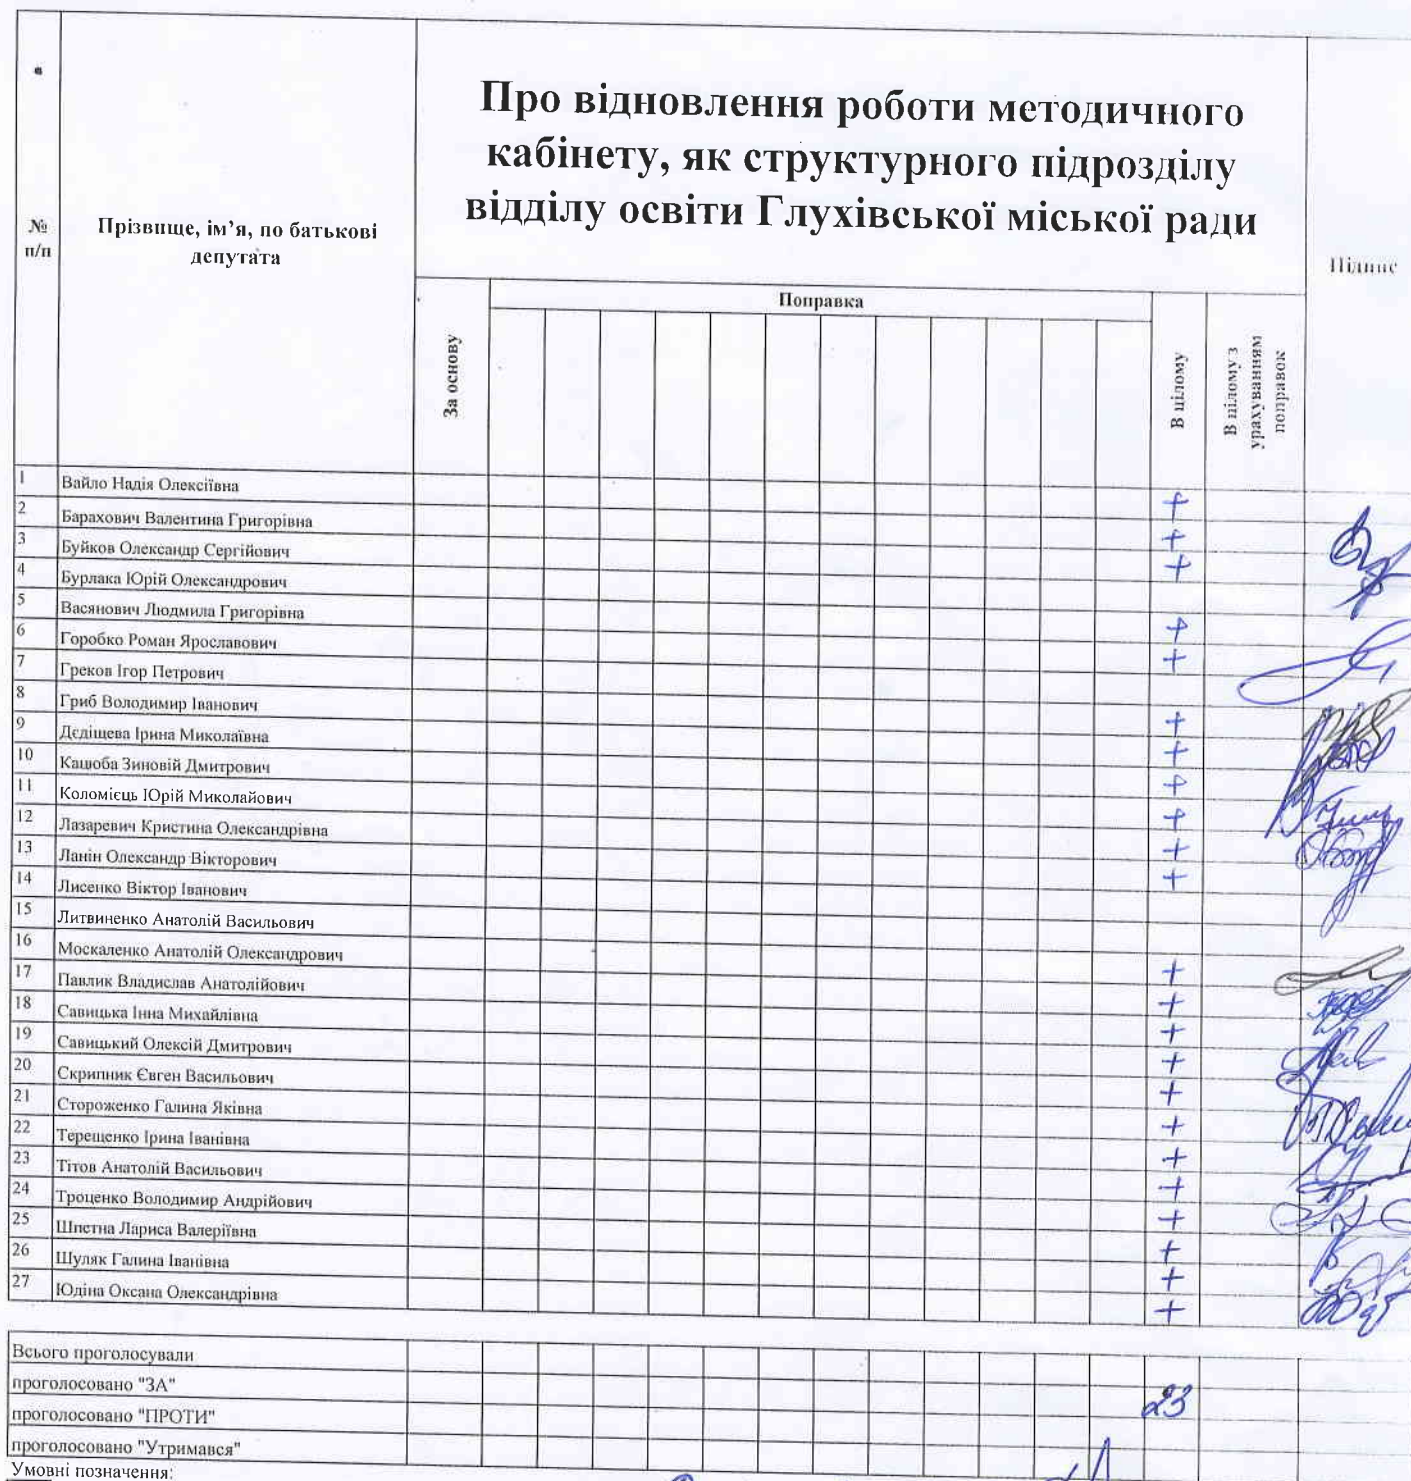 Про відновлення роботи методичного
кабінету, як структурного підрозділу
відділу освіти Глухівської міської ради
№
п/п
Прізвище, ім’я, по батькові
депутата
Підпис
Поправка
За основу
В цілому
В цілому з
урахуванням
поправок
1 Вайло Надія Олексіївна +
2 Барахович Валентина Григорівна +
3 Буйков Олександр Сергійович +
4 Бурлака Юрій Олександрович
5 Васянович Людмила Григорівна +
6 Горобко Роман Ярославович +
7 Греков Ігор Петрович
8 Гриб Володимир Іванович +
9 Дєдіщева Ірина Миколаївна +
10 Кацюба Зиновій Дмитрович +
11 Коломієць Юрій Миколайович +
12 Лазаревич Кристина Олександрівна +
13 Ланін Олександр Вікторович +
14 Лисенко Віктор Іванович
15 Литвиненко Анатолій Васильович
16 Москаленко Анатолій Олександрович +
17 Павлик Владислав Анатолійович +
18 Савицька Інна Михайлівна +
19 Савицький Олексій Дмитрович +
20 Скрипник Євген Васильович +
21 Стороженко Галина Яківна +
22 Терещенко Ірина Іванівна +
23 Тітов Анатолій Васильович +
24 Троценко Володимир Андрійович +
25 Шпетна Лариса Валеріївна +
26 Шуляк Галина Іванівна +
27 Юдіна Оксана Олександрівна +
Всього проголосували
проголосовано "ЗА" 23
проголосовано "ПРОТИ"
проголосовано "Утримався"
Умовні позначення: